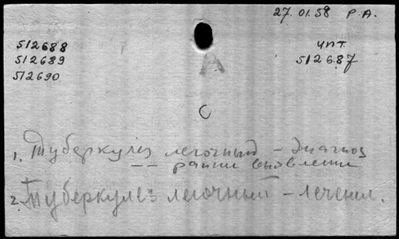 27.01.58 Р.А.
512688
512689
512690
ЧПТ.
512687
А
С
1. Туберкулез легочный - диагноз
-- ранн выявлени
2. Туберкулез легочный - лечени.